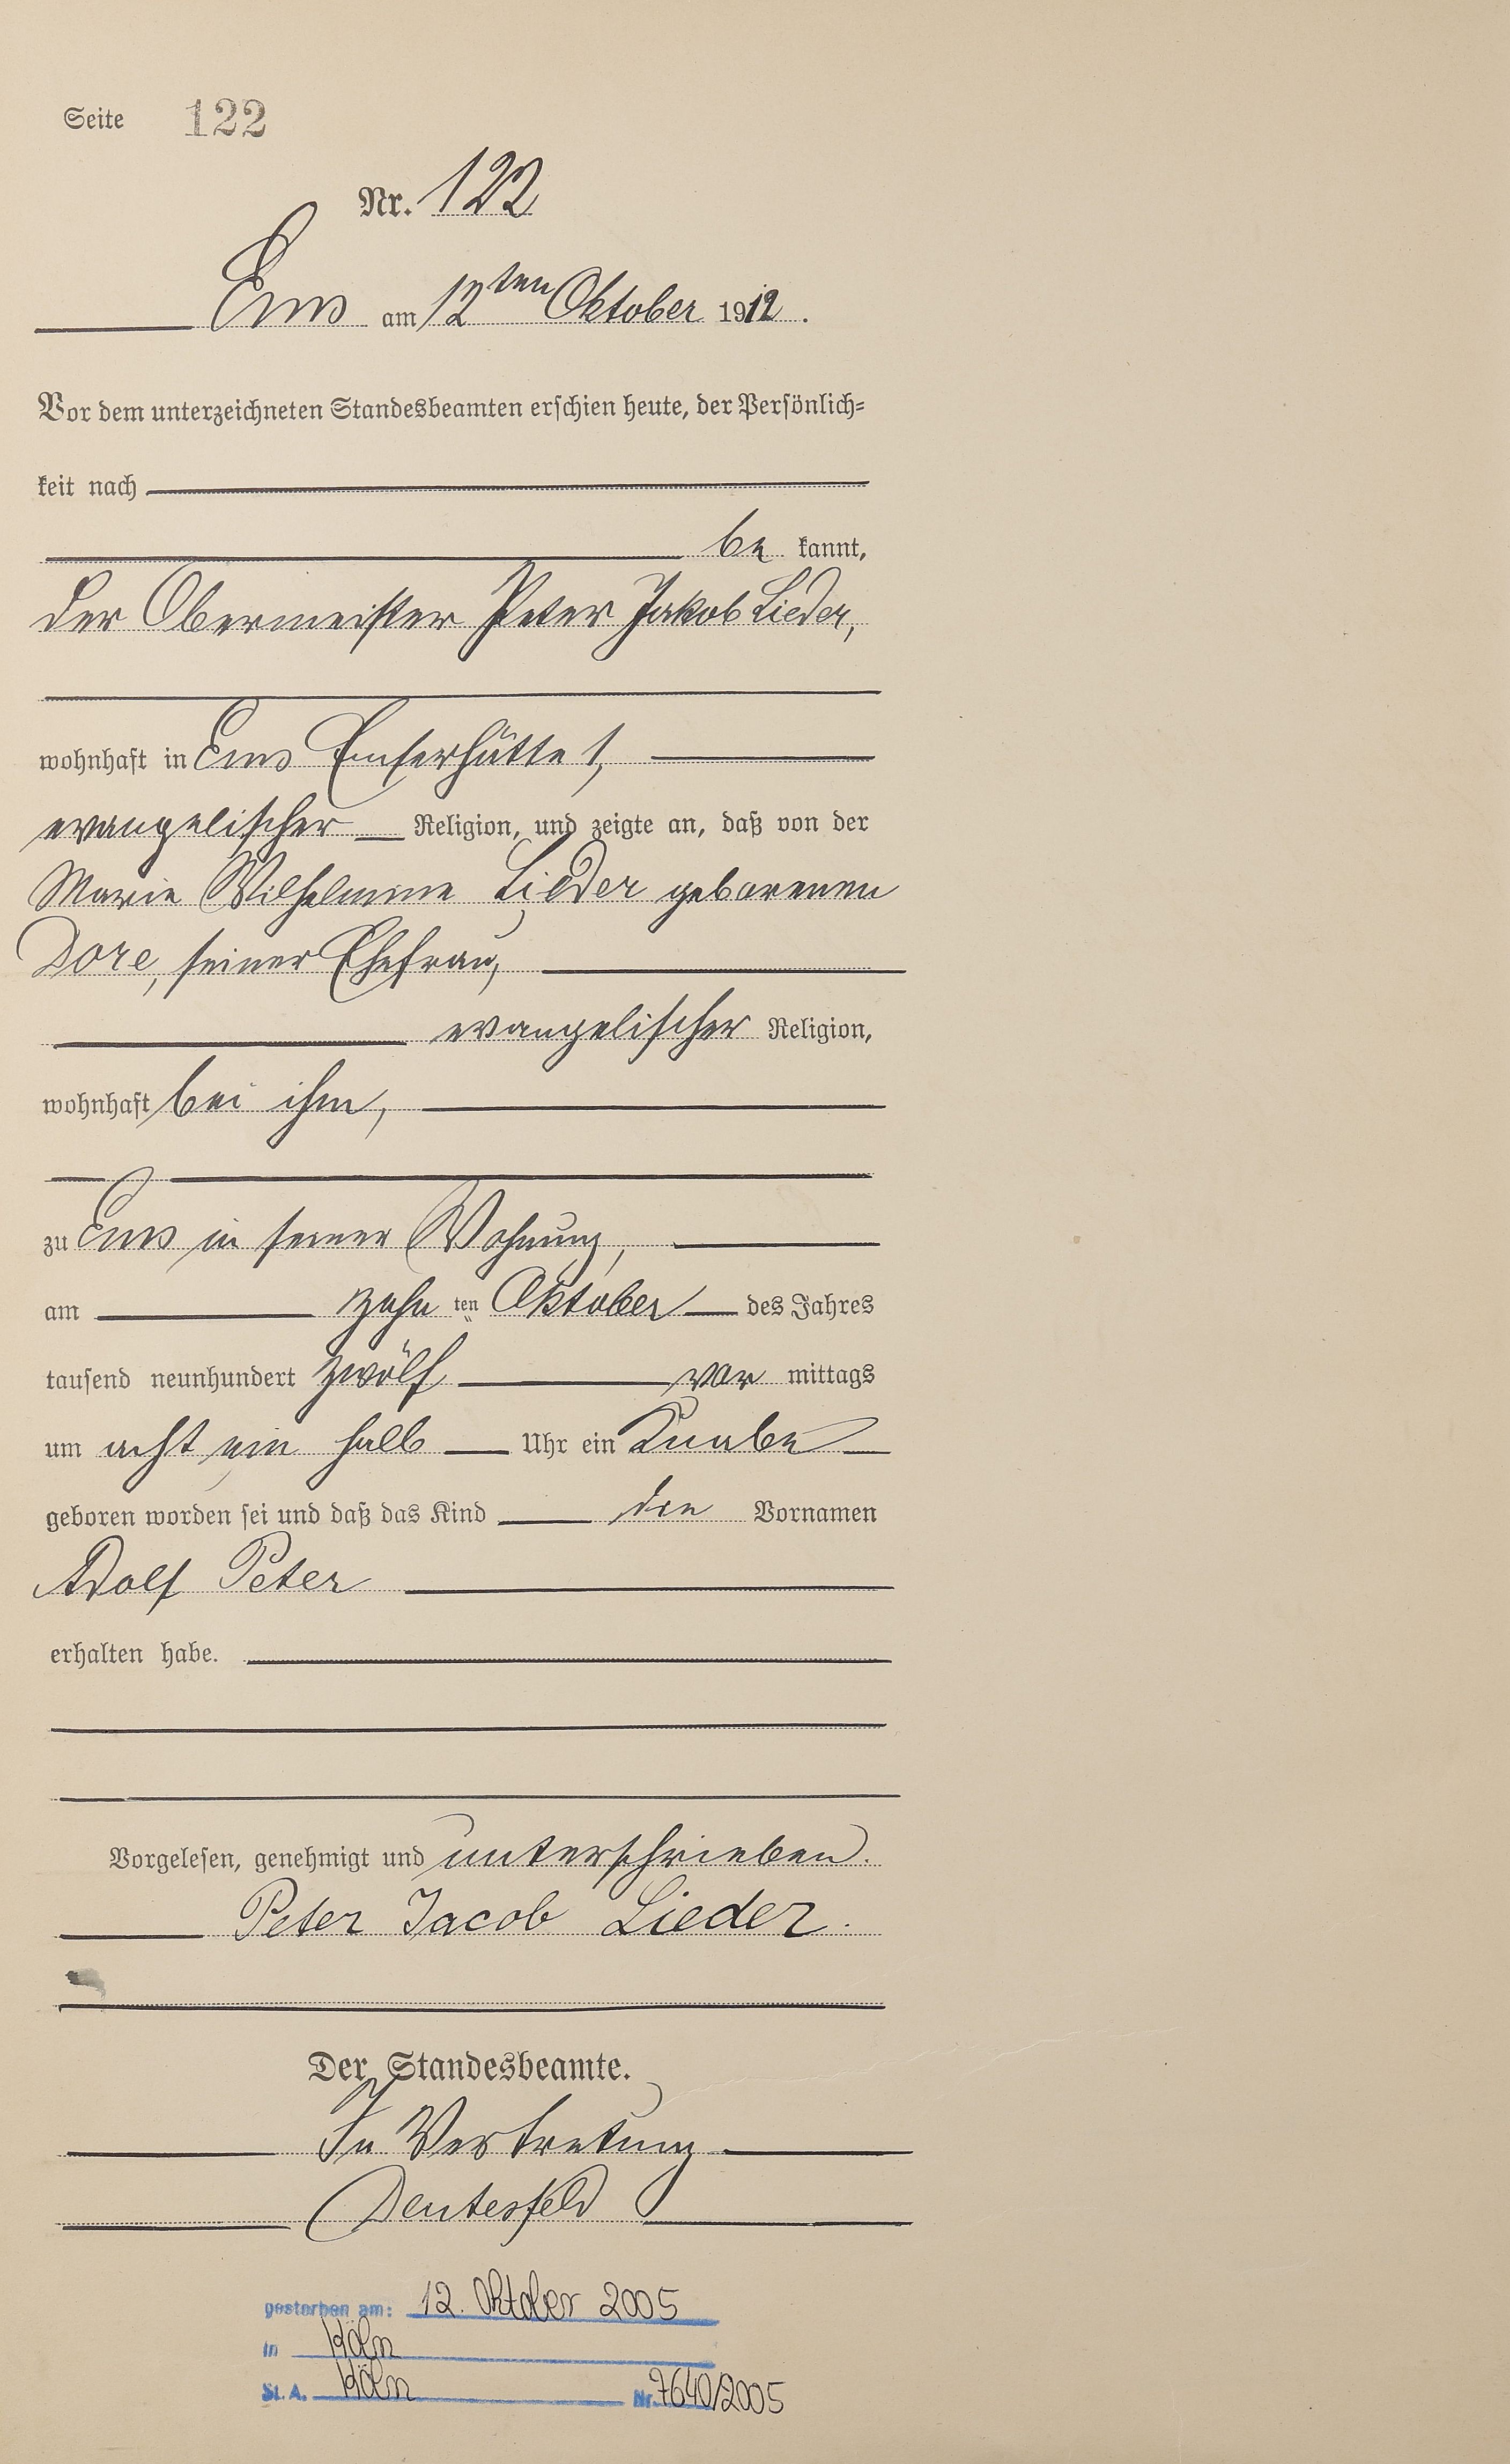 Seite 122
Nr. 122
Ems am 12ten Oktober 1912.
Vor dem unterzeichneten Standesbeamten erschien heute, der Persönlich-
keit nach
be kannt,
der Obermeister Peter Jakob Lieder,
wohnhaft in Ems Emserhütte 1,
evangelischer Religion, und zeigte an, daß von der
Marie Wilhelmine Lieder geborenen
Dore, seiner Ehefrau,
evangelischer Religion,
wohnhaft bei ihm,
zu Ems in seiner Wohnung,
am zehn ten Oktober des Jahres
tausend neunhundert zwölf vor mittags
um acht ein halb Uhr ein Knabe
geboren worden sei und daß das Kind den Vornamen
Adolf Peter
erhalten habe.
Vorgelesen, genehmigt und unterschrieben.
Peter Jacob Lieder.
Der Standesbeamte.
In Vertretung
gestorben am: 12. Oktober 2005
in Köln
St. A. Köln Nr. 7640/2005